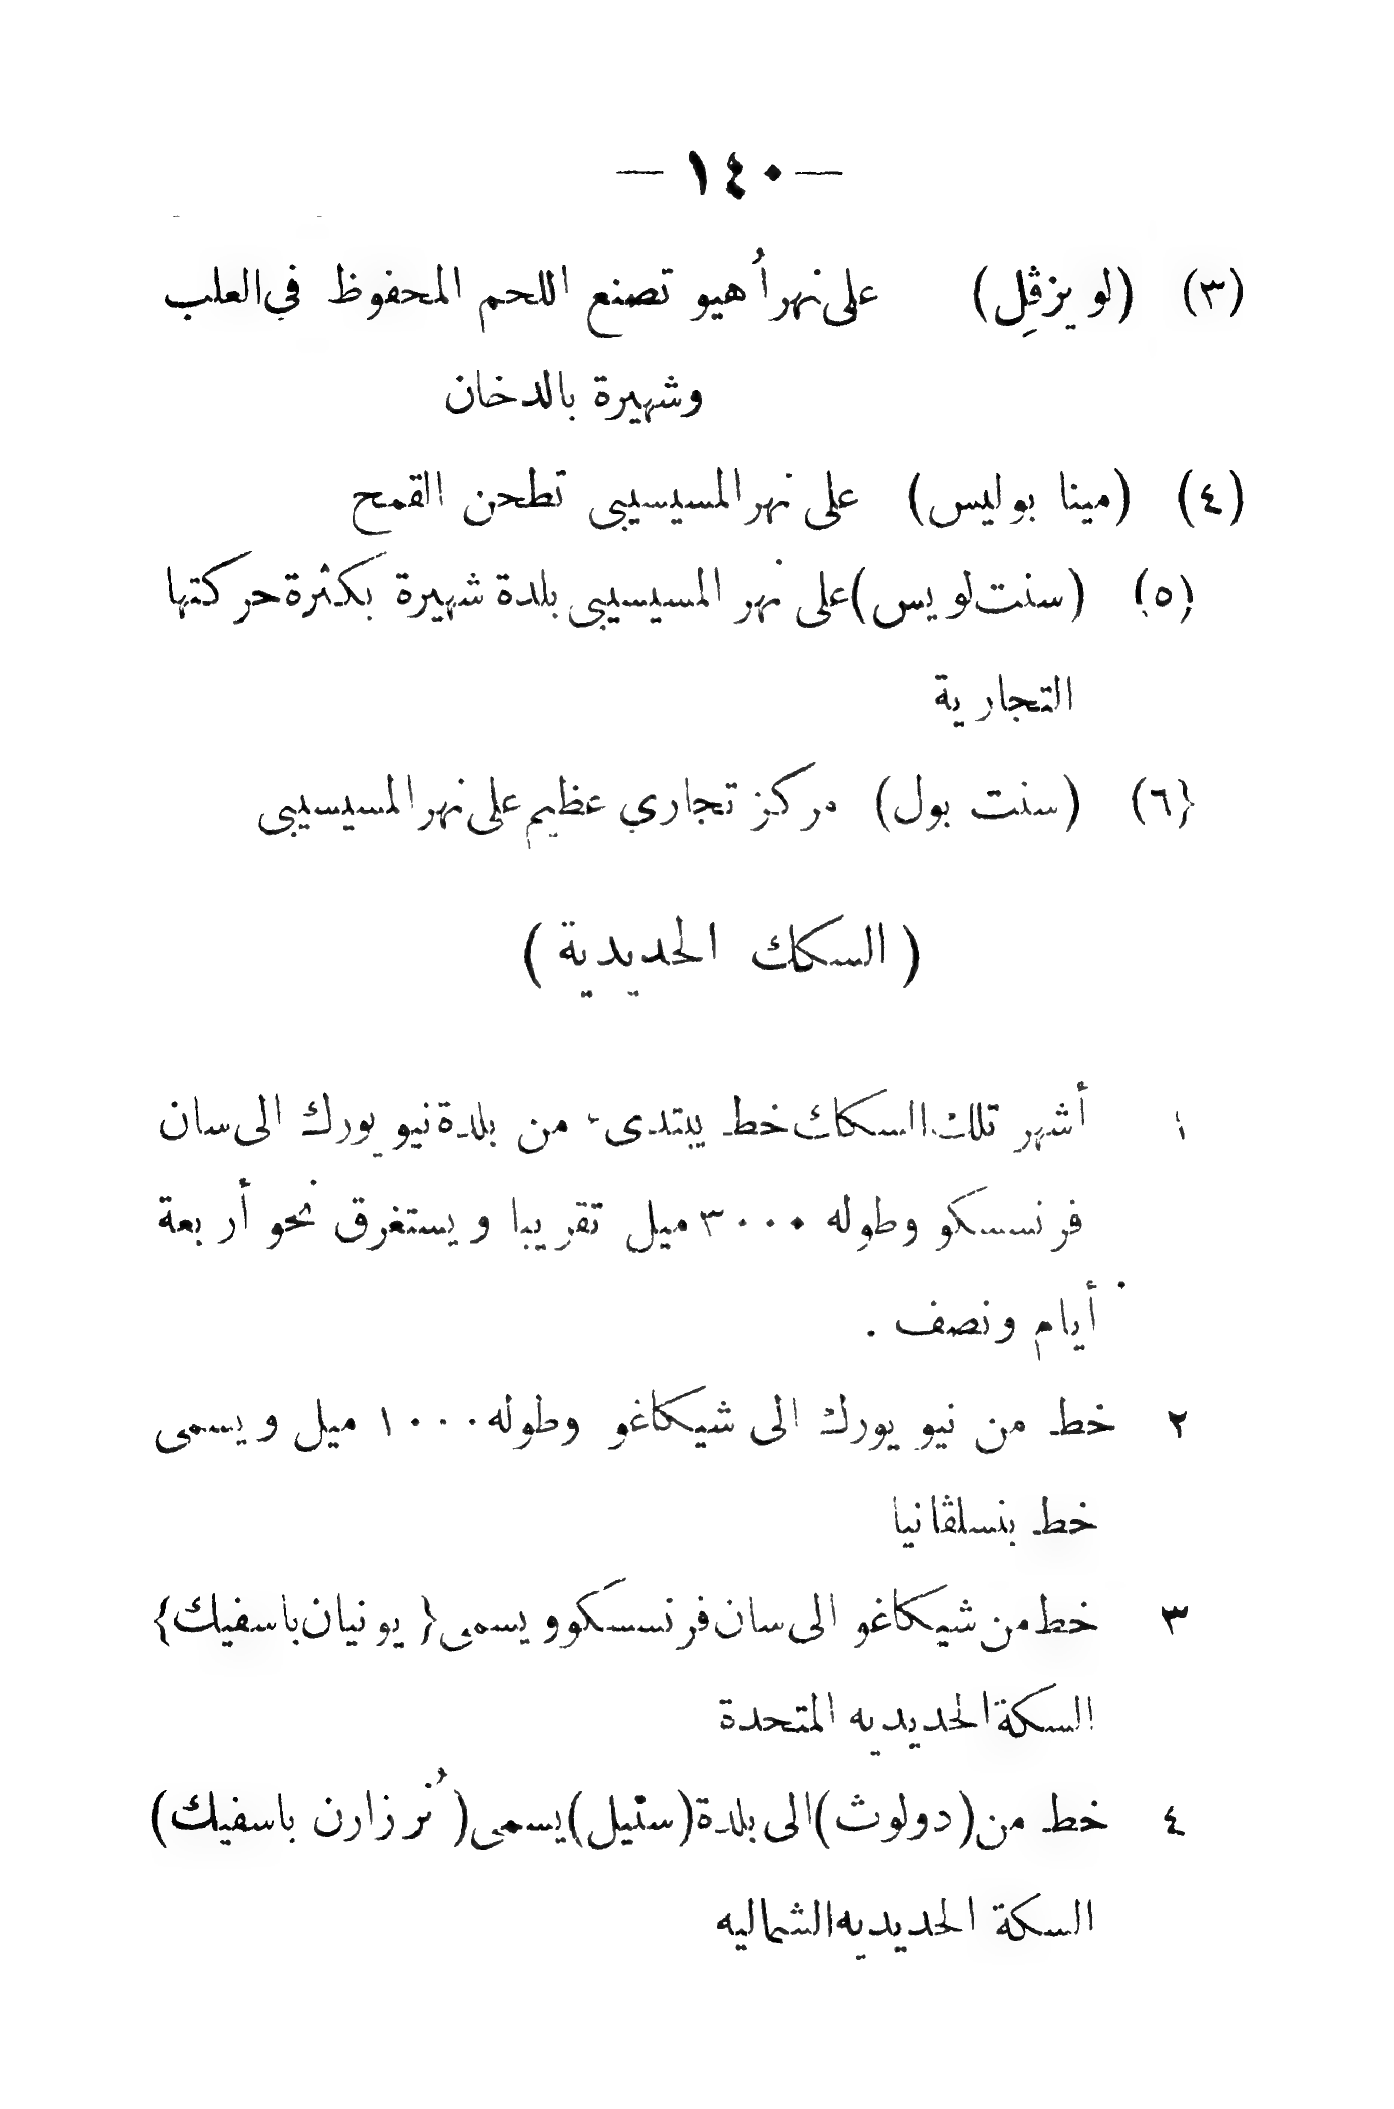 — ١٤٠ —
(٣) (لويزڤِل) على نهر أُهيو تصنع اللحم المحفوظ في العلب
وشهيرة بالدخان
(٤) (مينا بوليس) على نهر المسيسيبى تطحن القمح
(٥) (سنت لويس) على نهر المسيسيبى بلدة شهيرة بكثرة حركتها
التجارية
{٦) (سنت بول) مركز تجاري عظيم على نهر المسيسيبى
(السكك الحديدية)
١ أشهر تلك السكاك خط يبتدىء من بلدة نيو يورك الى سان
فرنسسكو وطوله ٣٠٠٠ ميل تقريبا ويستغرق نحو أربعة
أيام ونصف .
٢ خط من نيو يورك الى شيكاغو وطوله ١٠٠٠ ميل ويسمى
خط بنسلڤانيا
٣ خط من شيكاغو الى سان فرنسسكو ويسمى {يونيان باسفيك}
السكة الحديديه المتحدة
٤ خط من (دولوث) الى بلدة (ستيل) يسمى (نُرزارن باسفيك)
السكة الحديديه الشماليه